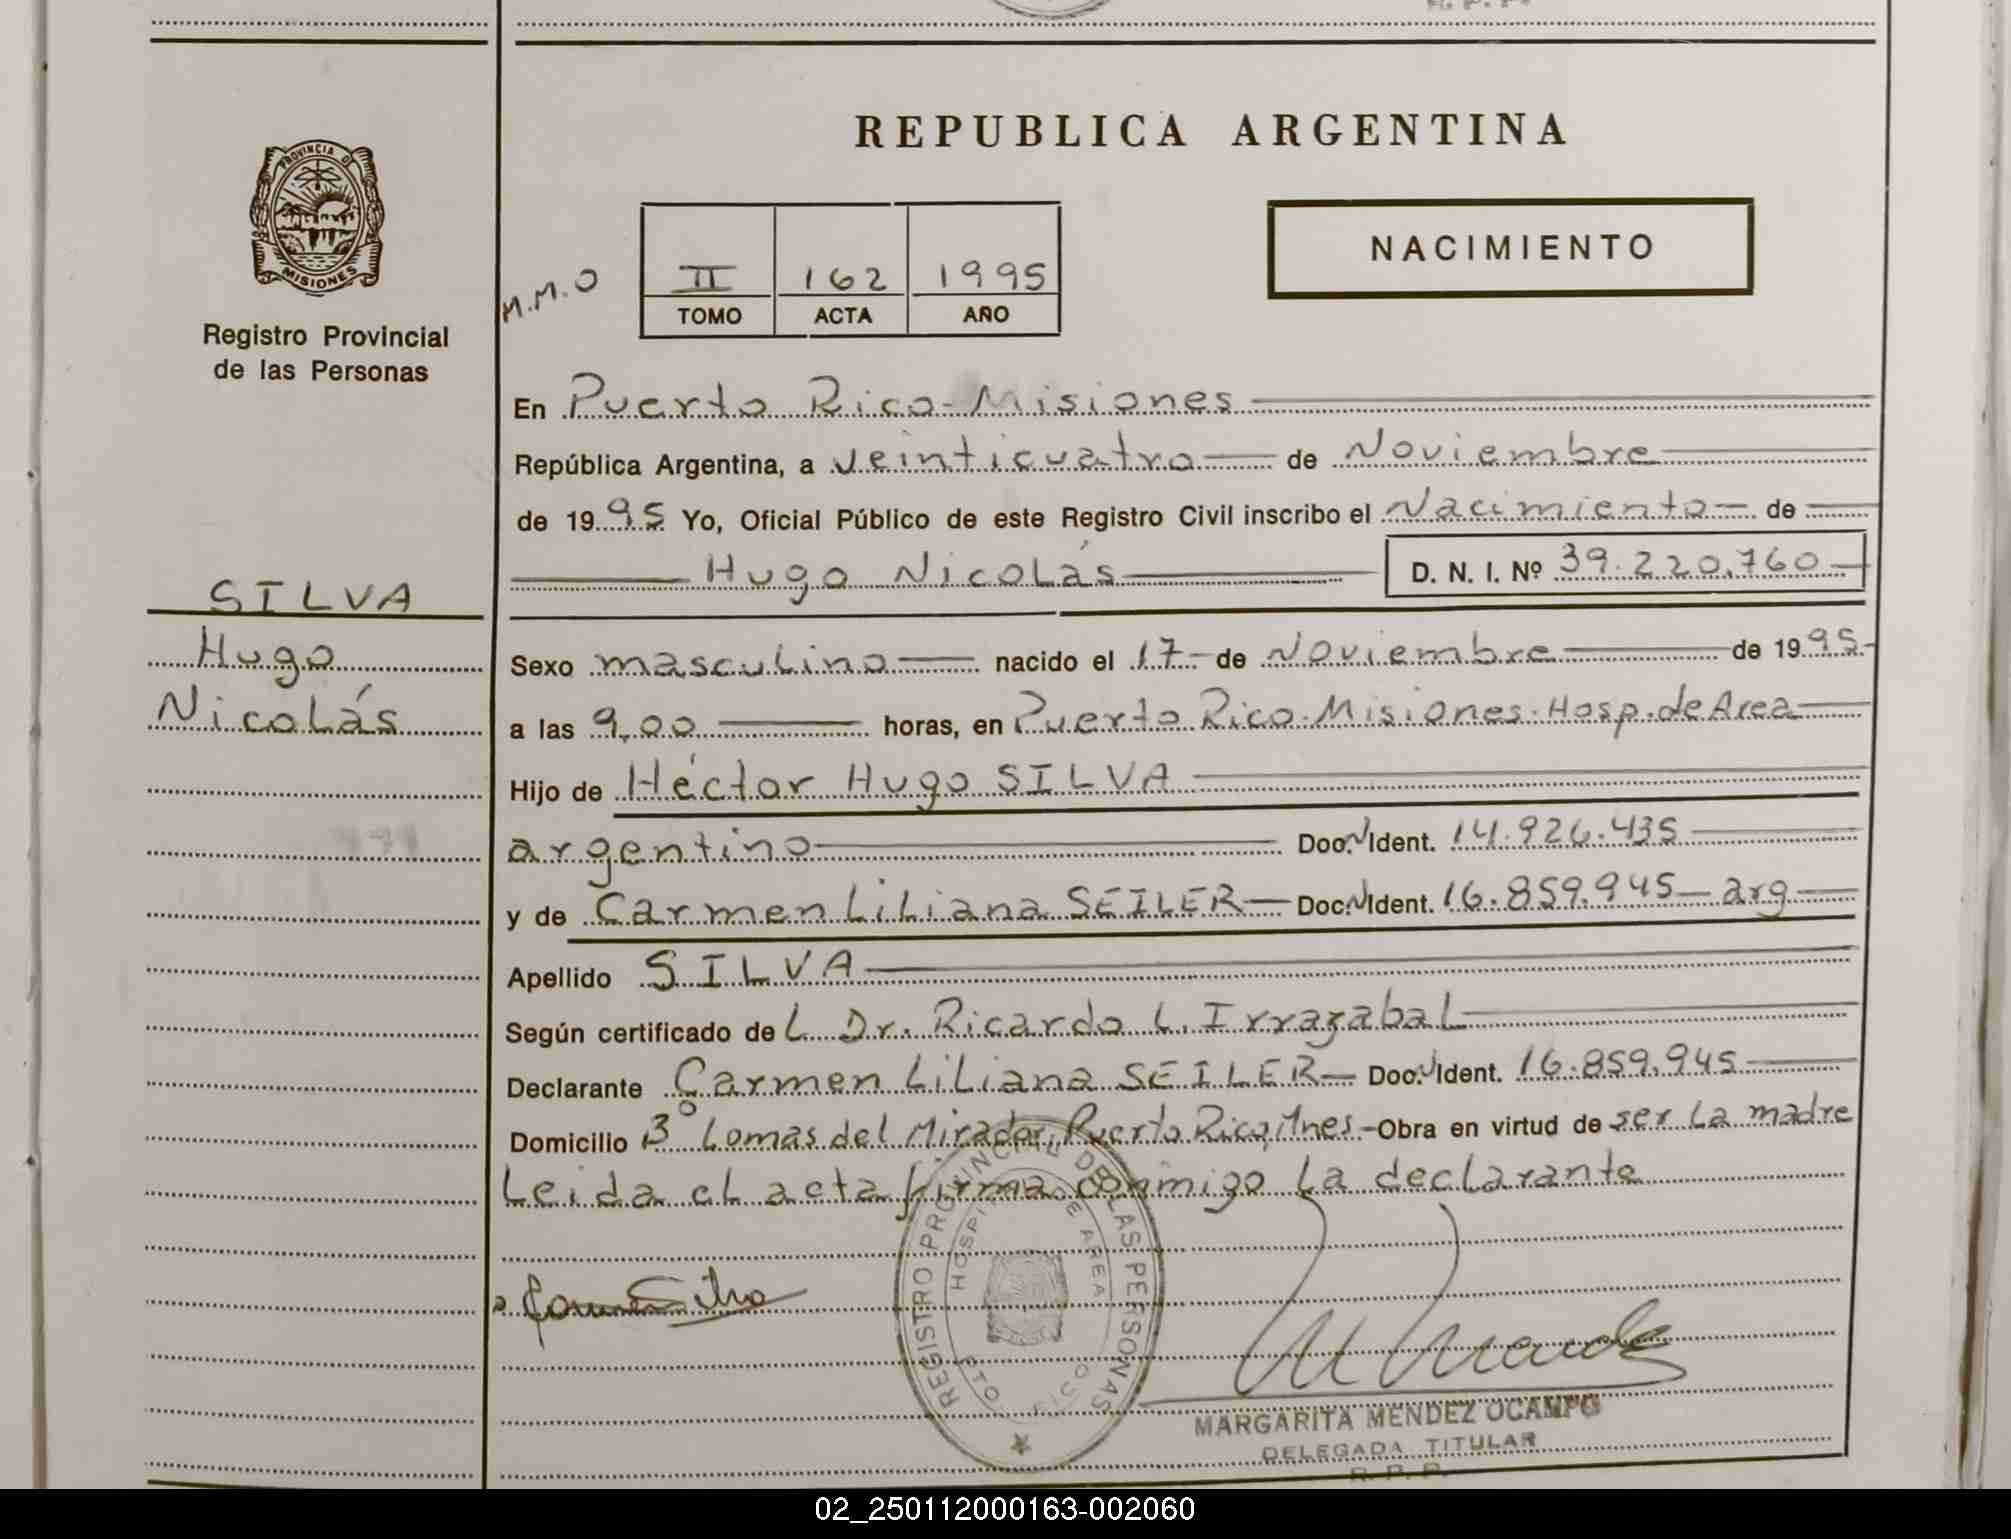 R. P. P.
PROVINCIA D
MISIONES
Registro Provincial
de las Personas
SILVA
Hugo
Nicolás
REPUBLICA ARGENTINA
M.M.O
II 162 1995
TOMO ACTA AÑO
NACIMIENTO
En Puerto Rico-Misiones
República Argentina, a veinticuatro de Noviembre
de 1995 Yo, Oficial Público de este Registro Civil inscribo el Nacimiento de
Hugo Nicolás D. N. I. Nº 39.220.760
Sexo masculino nacido el 17 de Noviembre de 1995
a las 9,00 horas, en Puerto Rico-Misiones-Hosp. de Area
Hijo de Héctor Hugo SILVA
argentino Doc. N Ident. 14.926.435
y de Carmen Liliana SEILER Doc. N Ident. 16.859.945 arg
Apellido SILVA
Según certificado del Dr. Ricardo L. Irrazabal
Declarante Carmen Liliana SEILER Doc. N Ident. 16.859.945
Domicilio Bº Lomas del Mirador, Puerto Rico, Mnes.-Obra en virtud de ser la madre
Leida el acta firma conmigo la declarante
REGISTRO PROVINCIAL DE LAS PERSONAS
MARGARITA MENDEZ OCAMPO
DELEGADA TITULAR
R. P. P.
02_250112000163-002060